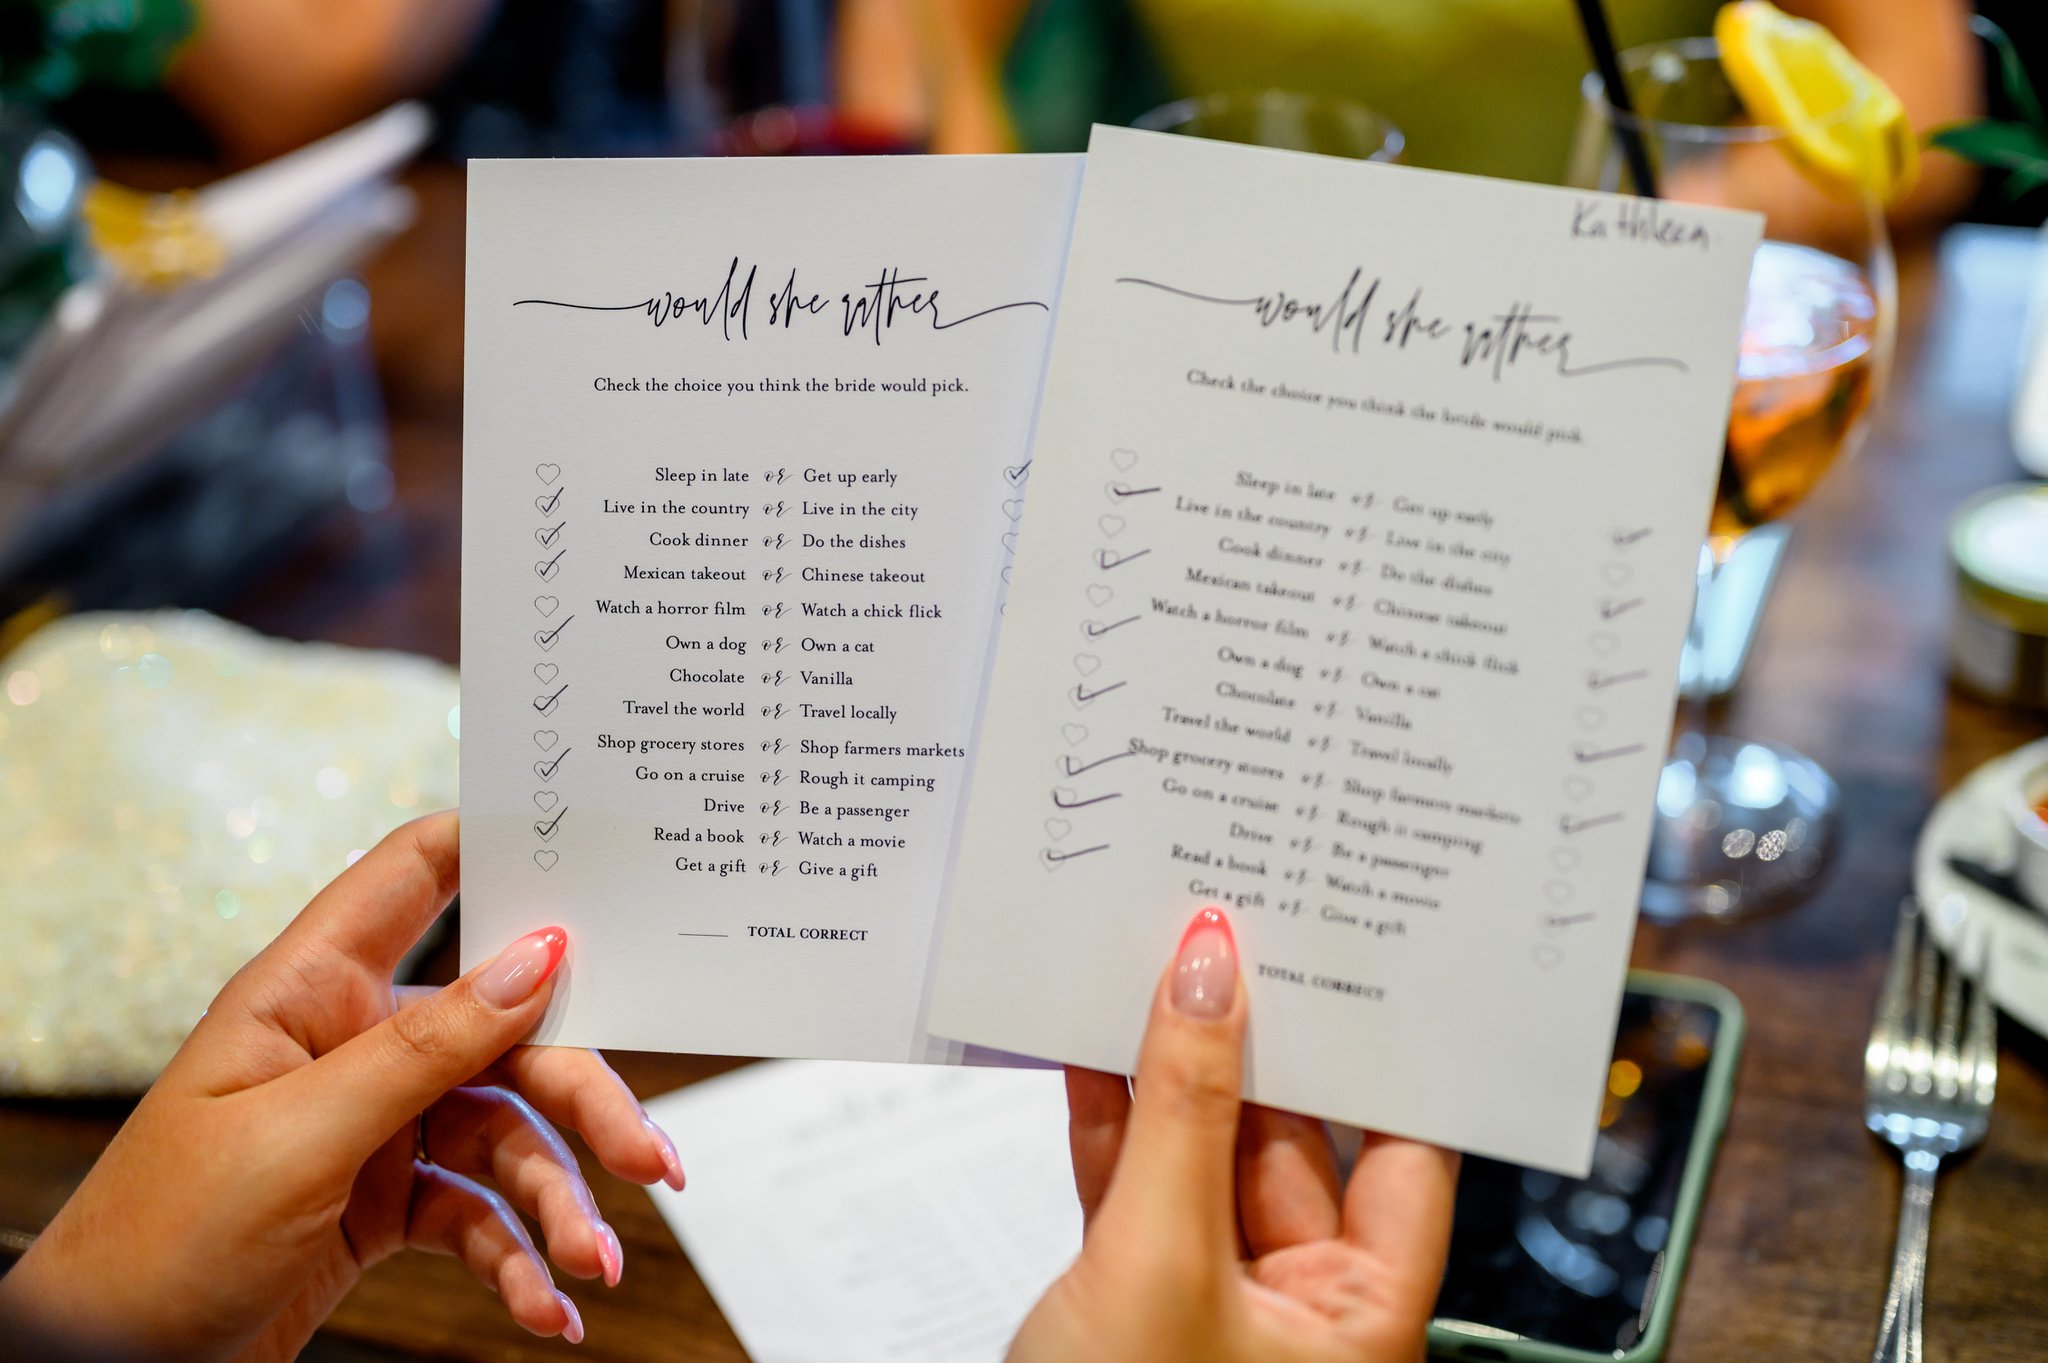 would she rather
Check the choice you think the bride would pick.
Sleep in late or Get up early
Live in the country or Live in the city
Cook dinner or Do the dishes
Mexican takeout or Chinese takeout
Watch a horror film or Watch a chick flick
Own a dog or Own a cat
Chocolate or Vanilla
Travel the world or Travel locally
Shop grocery stores or Shop farmers markets
Go on a cruise or Rough it camping
Drive or Be a passenger
Read a book or Watch a movie
Get a gift or Give a gift
TOTAL CORRECT
Kathleen
would she rather
Check the choice you think the bride would pick.
Sleep in late or Get up early
Live in the country or Live in the city
Cook dinner or Do the dishes
Mexican takeout or Chinese takeout
Watch a horror film or Watch a chick flick
Own a dog or Own a cat
Chocolate or Vanilla
Travel the world or Travel locally
Shop grocery stores or Shop farmers markets
Go on a cruise or Rough it camping
Drive or Be a passenger
Read a book or Watch a movie
Get a gift or Give a gift
TOTAL CORRECT